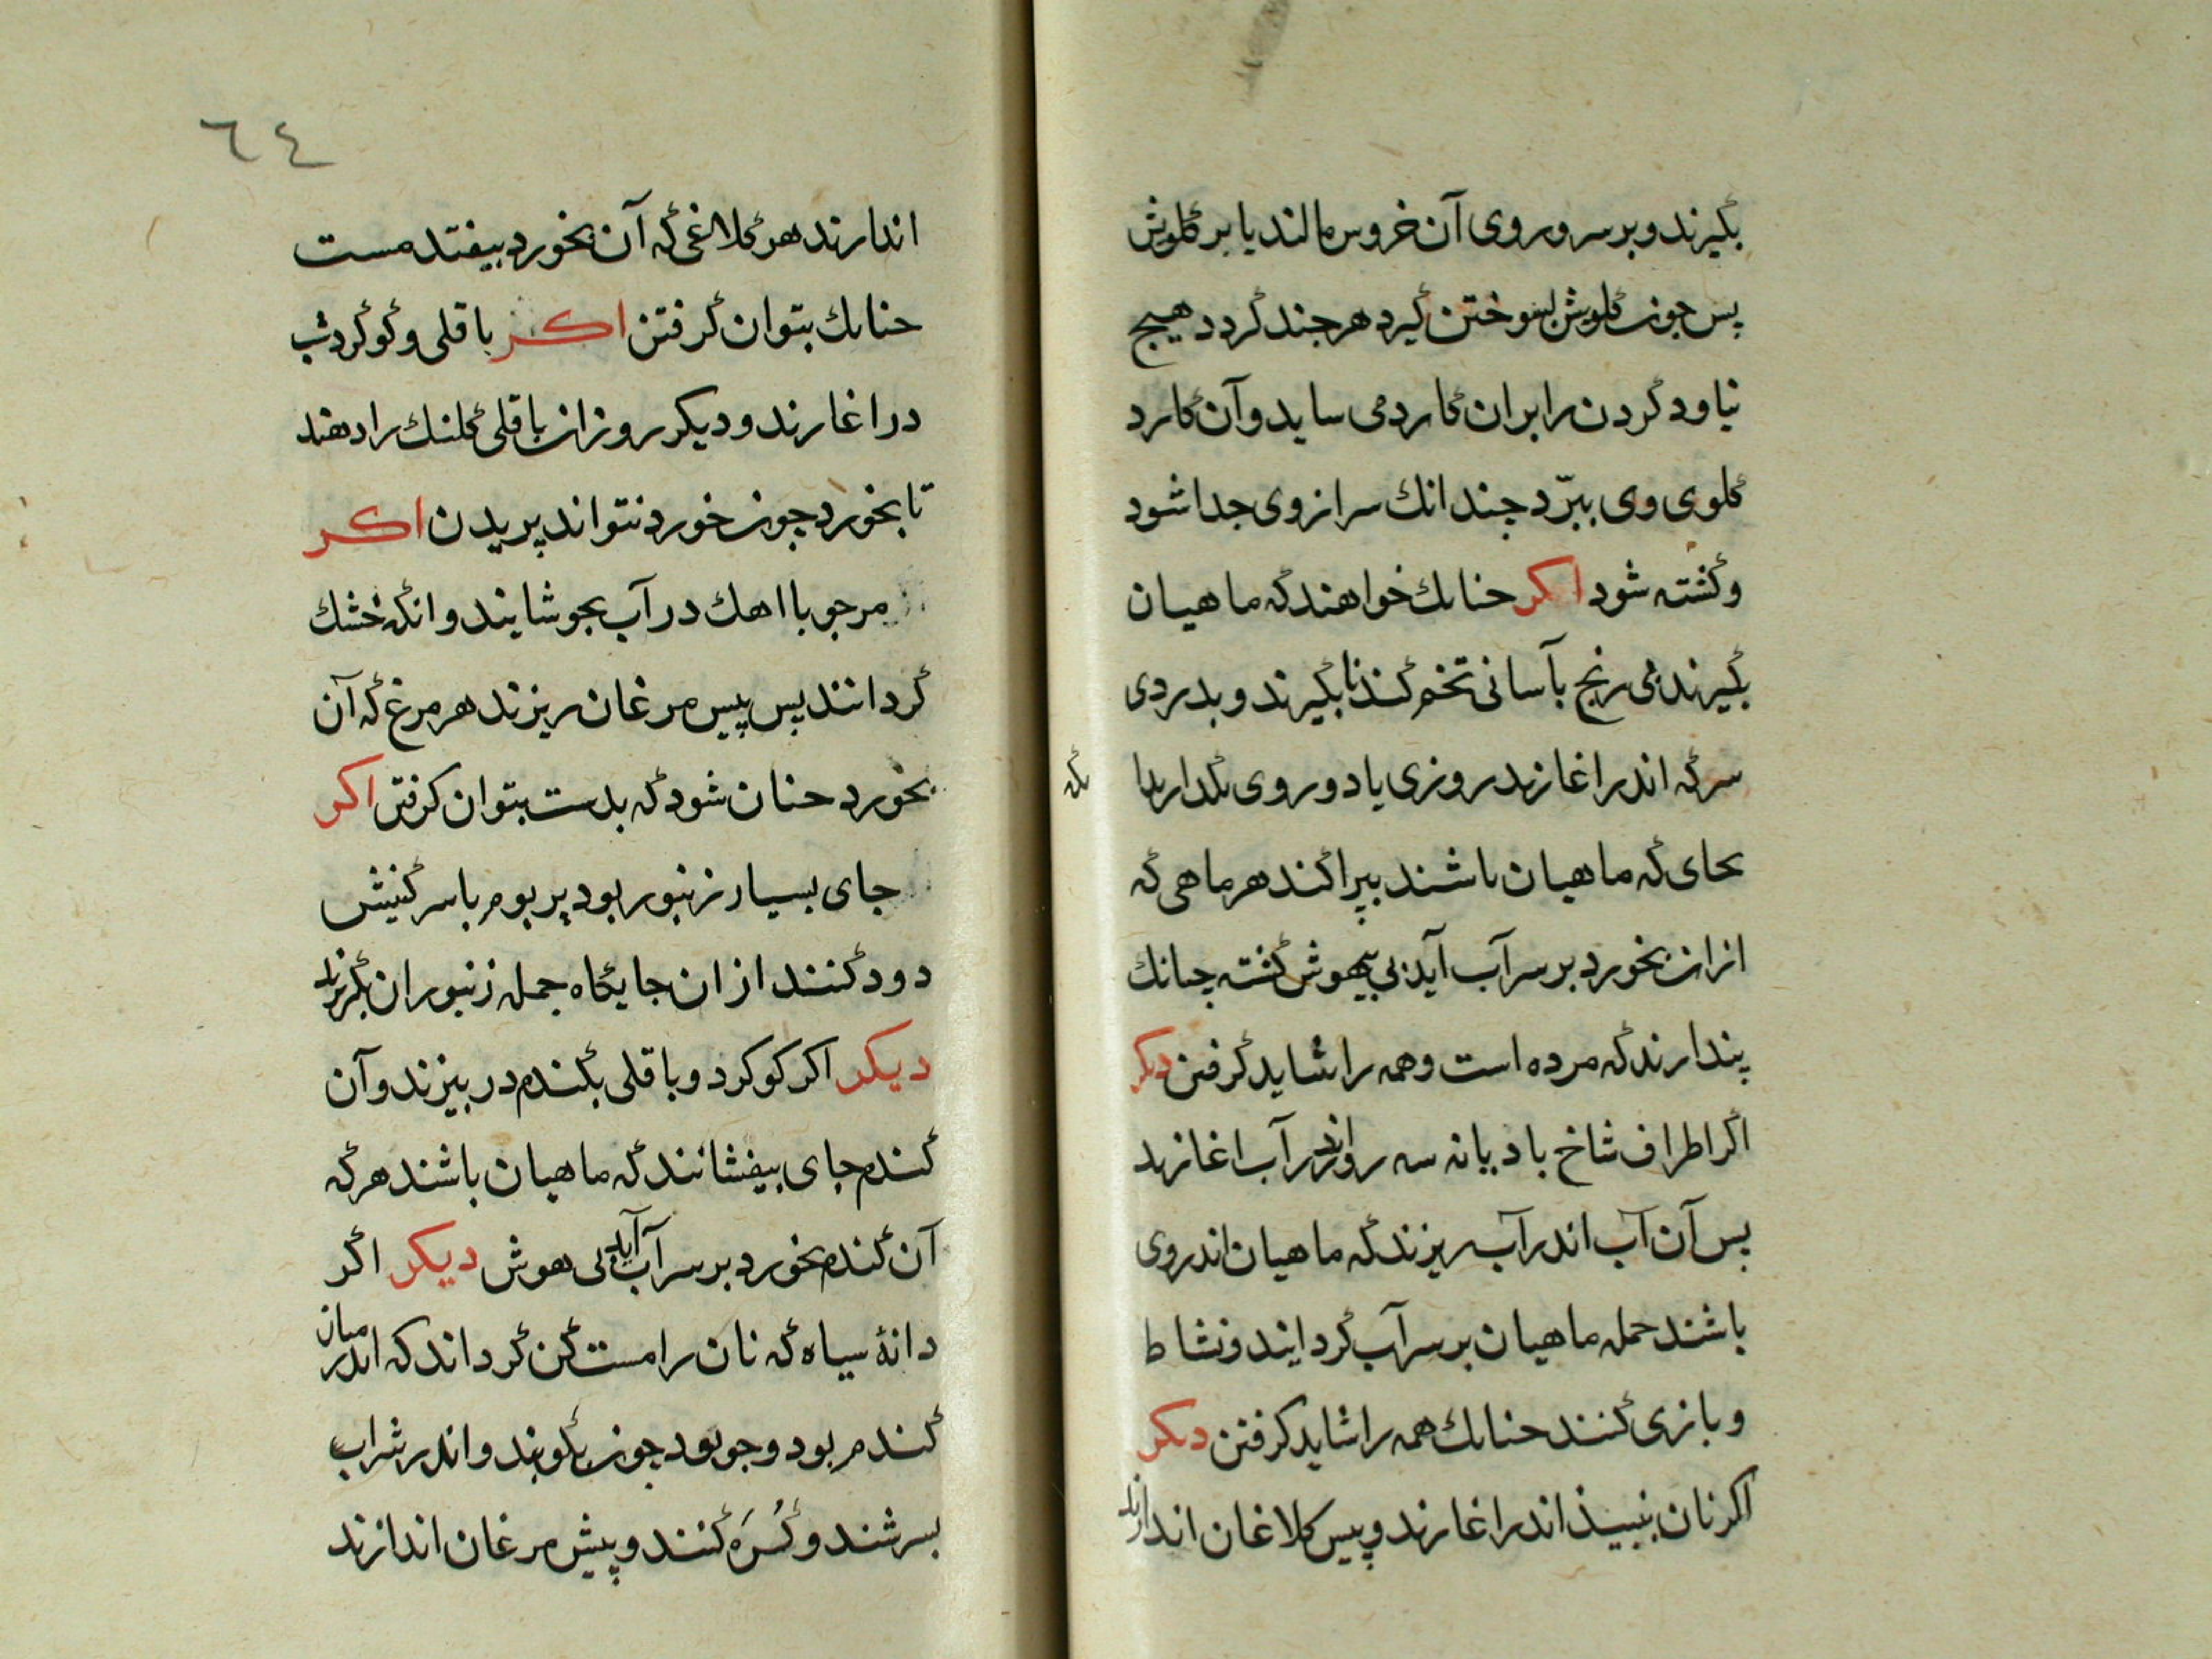 بکیرند و بر سر و روی آن خروس مالند یا بر کلوش
پس جون کلویش بسوختن کیرد هر جند کردد هیج
نیاود کردن را بران کارد می ساید و آن کارد
کلوی وی ببرّد جندانك سر از وی جدا شود
و کشته شود اکر حنانك خواهند که ماهیان
بکیرند بی رنج بآسانی تخم کند تا بکیرند و بدردی
سرکه اندر اغازند روزی یا دو روی بکدارند
بحای که ماهیان باشند بپراکند هر ماهی که
ازان بخورد بر سر آب آید بی بیهوش کشته چنانك
پندارند که مرده است و همه را شاید کرفتن دیکر
اکر اطراف شاخ بادیانه سه روز اندر آب اغازند
پس آن آب اندر آب ریزند که ماهیان اندر وی
باشند جمله ماهیان بر سر آب کرد ایند و نشاط
و بازی کنند حنانك همه را شاید کرفتن دیکر
اکر نان بنبیذ اندر اغارند و پیس کلاغان اندازند
بکه
٦٤
اندازند هر کلاغی که آن بخورد بیفتد مست
حنانك بتوان کرفتن اکر باقلی و کوکرد شب
در اغارند و دیکر روز ان باقلی کلنك را دهند
تا بخورد جون خورد نتواند پریدن اکر
مرجو با اهك در آب بجوشایند و انکه خشك
کردانند پس پیس مرغان ریزند هر مرغ که آن
بخورد حنان شود که بدست بتوان کرفتن اکر
جای بسیار زنبور بود پر بوم با سرکنیش
دود کنند از ان جایکاه جمله زنبوران بکریزند
دیکر اکر کوکرد و باقلی بکندم در بیزند و آن
کندم جای بیفشانند که ماهیان باشند هر که
آن کندم بخورد بر سر آب آید بی هوش دیکر اکر
دانهٔ سیاه که نان را مست کن کرداند که اندر میان
کندم بود و جو بود جون بکوبند و اندر شراب
بسرشند و کُسَره کنند و پیش مرغان اندازند